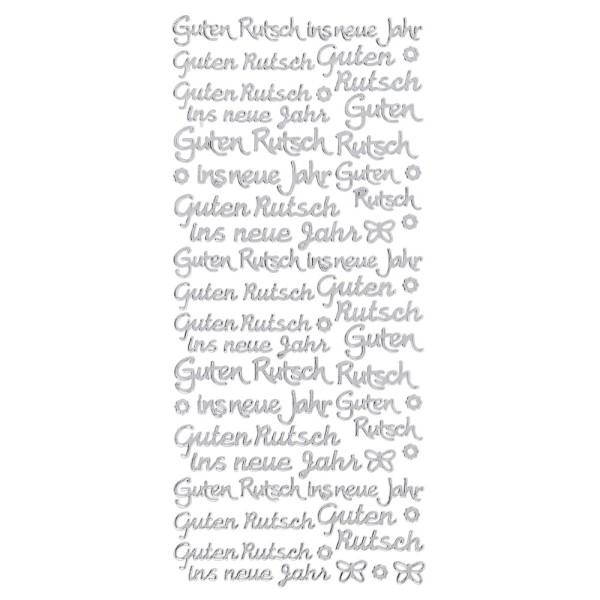 Guten Rutsch ins neue Jahr
Guten Rutsch Guten
Rutsch
Guten Rutsch
ins neue Jahr Guten
Guten Rutsch Rutsch
ins neue Jahr Guten
Rutsch
Guten Rutsch
ins neue Jahr
Guten Rutsch ins neue Jahr
Guten Rutsch Guten
Rutsch
Guten Rutsch
ins neue Jahr Guten
Guten Rutsch Rutsch
ins neue Jahr Guten
Rutsch
Guten Rutsch
ins neue Jahr
Guten Rutsch ins neue Jahr
Guten Rutsch Guten
Rutsch
Guten Rutsch
ins neue Jahr